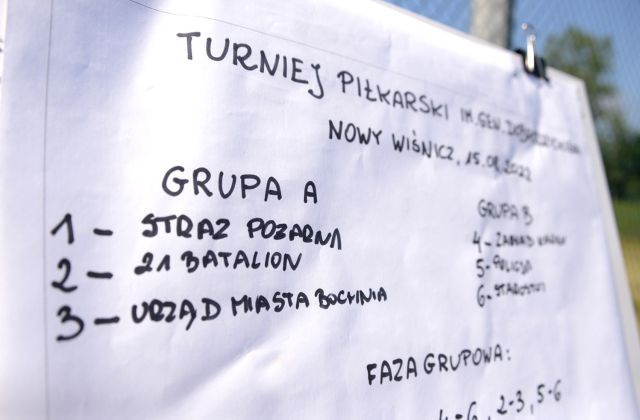 TURNIEJ PIŁKARSKI IM. GEN.
NOWY WIŚNICZ, 15.08.2022
GRUPA A
1 - STRAZ POZARNA
2 - 21 BATALION
3 - URZĄD MIASTA BOCHNIA
GRUPA B
4 - ZAKŁAD KARNY
5 - POLICJA
6 - STAROSTWO
FAZA GRUPOWA:
4-6, 2-3, 5-6